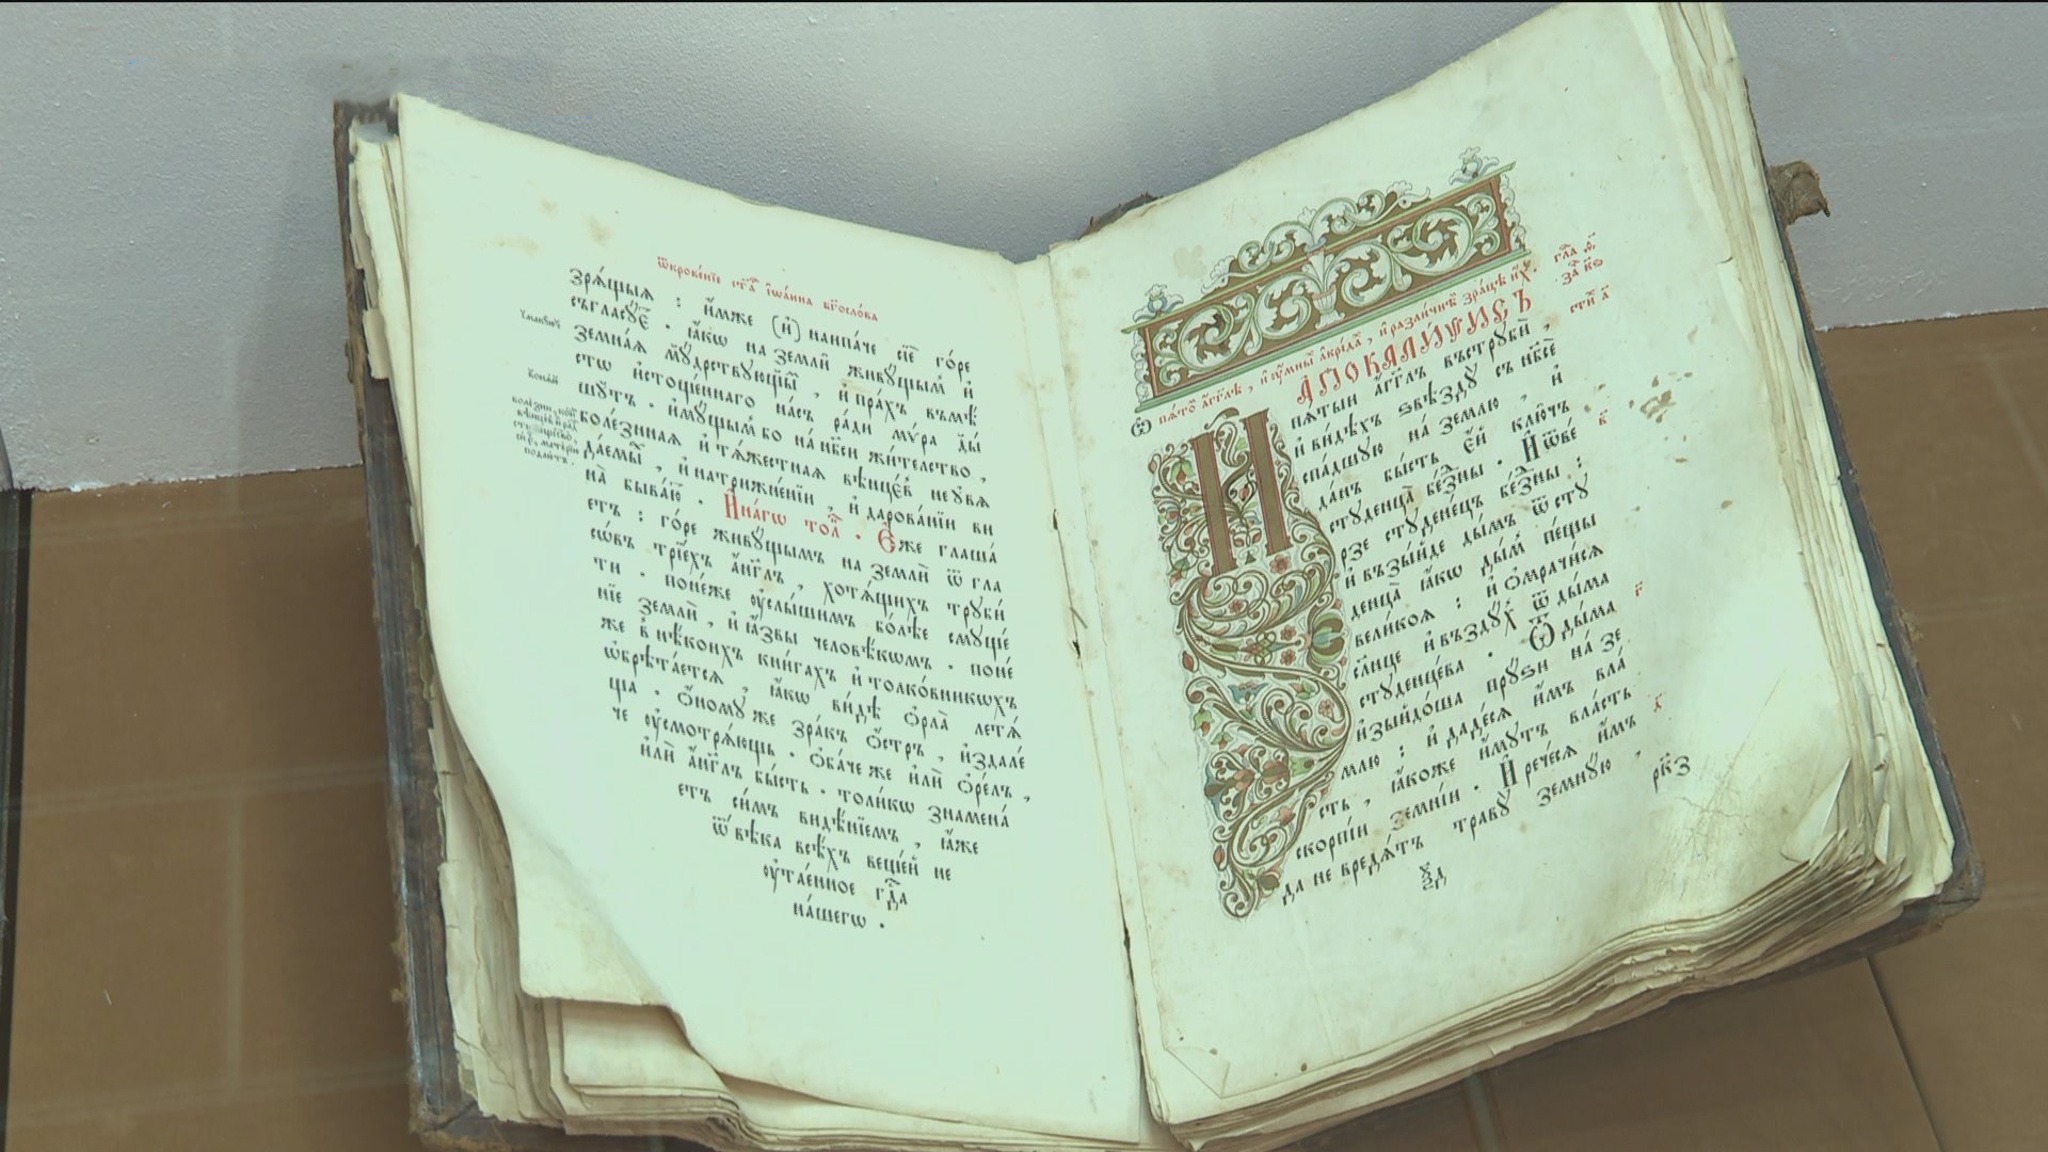 ѿкрове́нїе ст҃а́гѡ і҆ѡа́нна бг҃осло́ва
зрѧ́щыѧ : и҆́мже (и҆) наипа́че сїѐ го́ре
съгласꙋ́е . ꙗ҆́кѡ на землѝ живꙋ́щым̾ и҆
земна́ѧ мꙋ́дрствꙋющїм , и҆ пра́хъ вмѣ́
стѡ и҆стощеннаго на́съ ра́ди мѵ́ра ды́
шꙋтъ . и҆мꙋ́щым̾ бо на нб҃си жи́телство ,
болѣ́зннаѧ и҆ тѧ́жестнаѧ вѣнце́въ неꙋвѧ
да́емы , и҆ натриже́нїи , и҆ дарова́нїи ви
на̀ быва́ю . И҆на́гѡ тол . Е҆́же глаша́
етъ : го́ре живꙋ́щымъ на землѝ ѿ гла
со́въ трїе́хъ а҆́нг҃лъ , хотѧ́щихъ трꙋби́
ти . поне́же ᲂу҆слы́шимъ бо́лѣе смꙋще́
нїе землѝ , и҆ ꙗ҆́звы человѣ́кѡмъ . поне́
же в нѣ́коихъ кни́гахъ и҆ толко́вникѡхъ
ѡ҆брѣта́етсѧ , ꙗ҆́кѡ ви́дѣ ѻ҆рла̀ летѧ́
ща . ѻ҆́номꙋ же зра́къ ѻ҆́стръ , и҆здале́
че ᲂу҆смотрѧ́ющь . ѻ҆ба́че же и҆лѝ ѻ҆ре́лъ ,
и҆лѝ а҆́нг҃лъ бы́сть . толи́кѡ знамена́
етъ си́мъ видѣ́нїемъ , ꙗ҆́же
ѿ вѣ́ка всѣ́хъ веще́й не
ᲂу҆тае́нное гд҃а
на́шегѡ .
Ѡ пѧ́то а҆́гг҃лѣ , и҆ ᲂу҆́мны а҆кри́да , и҆ разли́чнѣ зра́цѣ и҆́хъ . гла ѳ҃
А҆ПОКАЛИ́ѰИСЪ за к҃ѳ
И пѧ́тыи а҆́гг҃лъ въстрꙋбѝ , сти а҃
и҆ ви́дѣхъ ѕвѣздꙋ̀ съ нб҃сѐ
спа́дшꙋю на́ землю , и҆
да́нъ бы́сть е҆́й клю́чъ
стꙋденца̀ бе́здны . И҆ ѿве́ в҃
рзе стꙋдене́цъ бе́здны :
и҆ възы́йде ды́мъ ѿ стꙋ
денца̀ ꙗ҆́кѡ ды́м̾ пе́щы
вели́коѧ : и҆ ѻ҆мрачи́сѧ
сл҃нце и҆ въздꙋ́хъ ѿ ды́ма
стꙋденце́ва . Ѿ ды́ма г҃
и҆зыйдо́ша прꙋ́зи на́ зе
млю : и҆ даде́сѧ и҆́мъ вла́
сть , ꙗ҆́коже и҆́мꙋтъ вла́сть
скорпі́и земні́и . И҆ рече́сѧ и҆́мъ д҃
да не вредѧ́тъ травꙋ̀ земнꙋ́ю ,
рк҃з